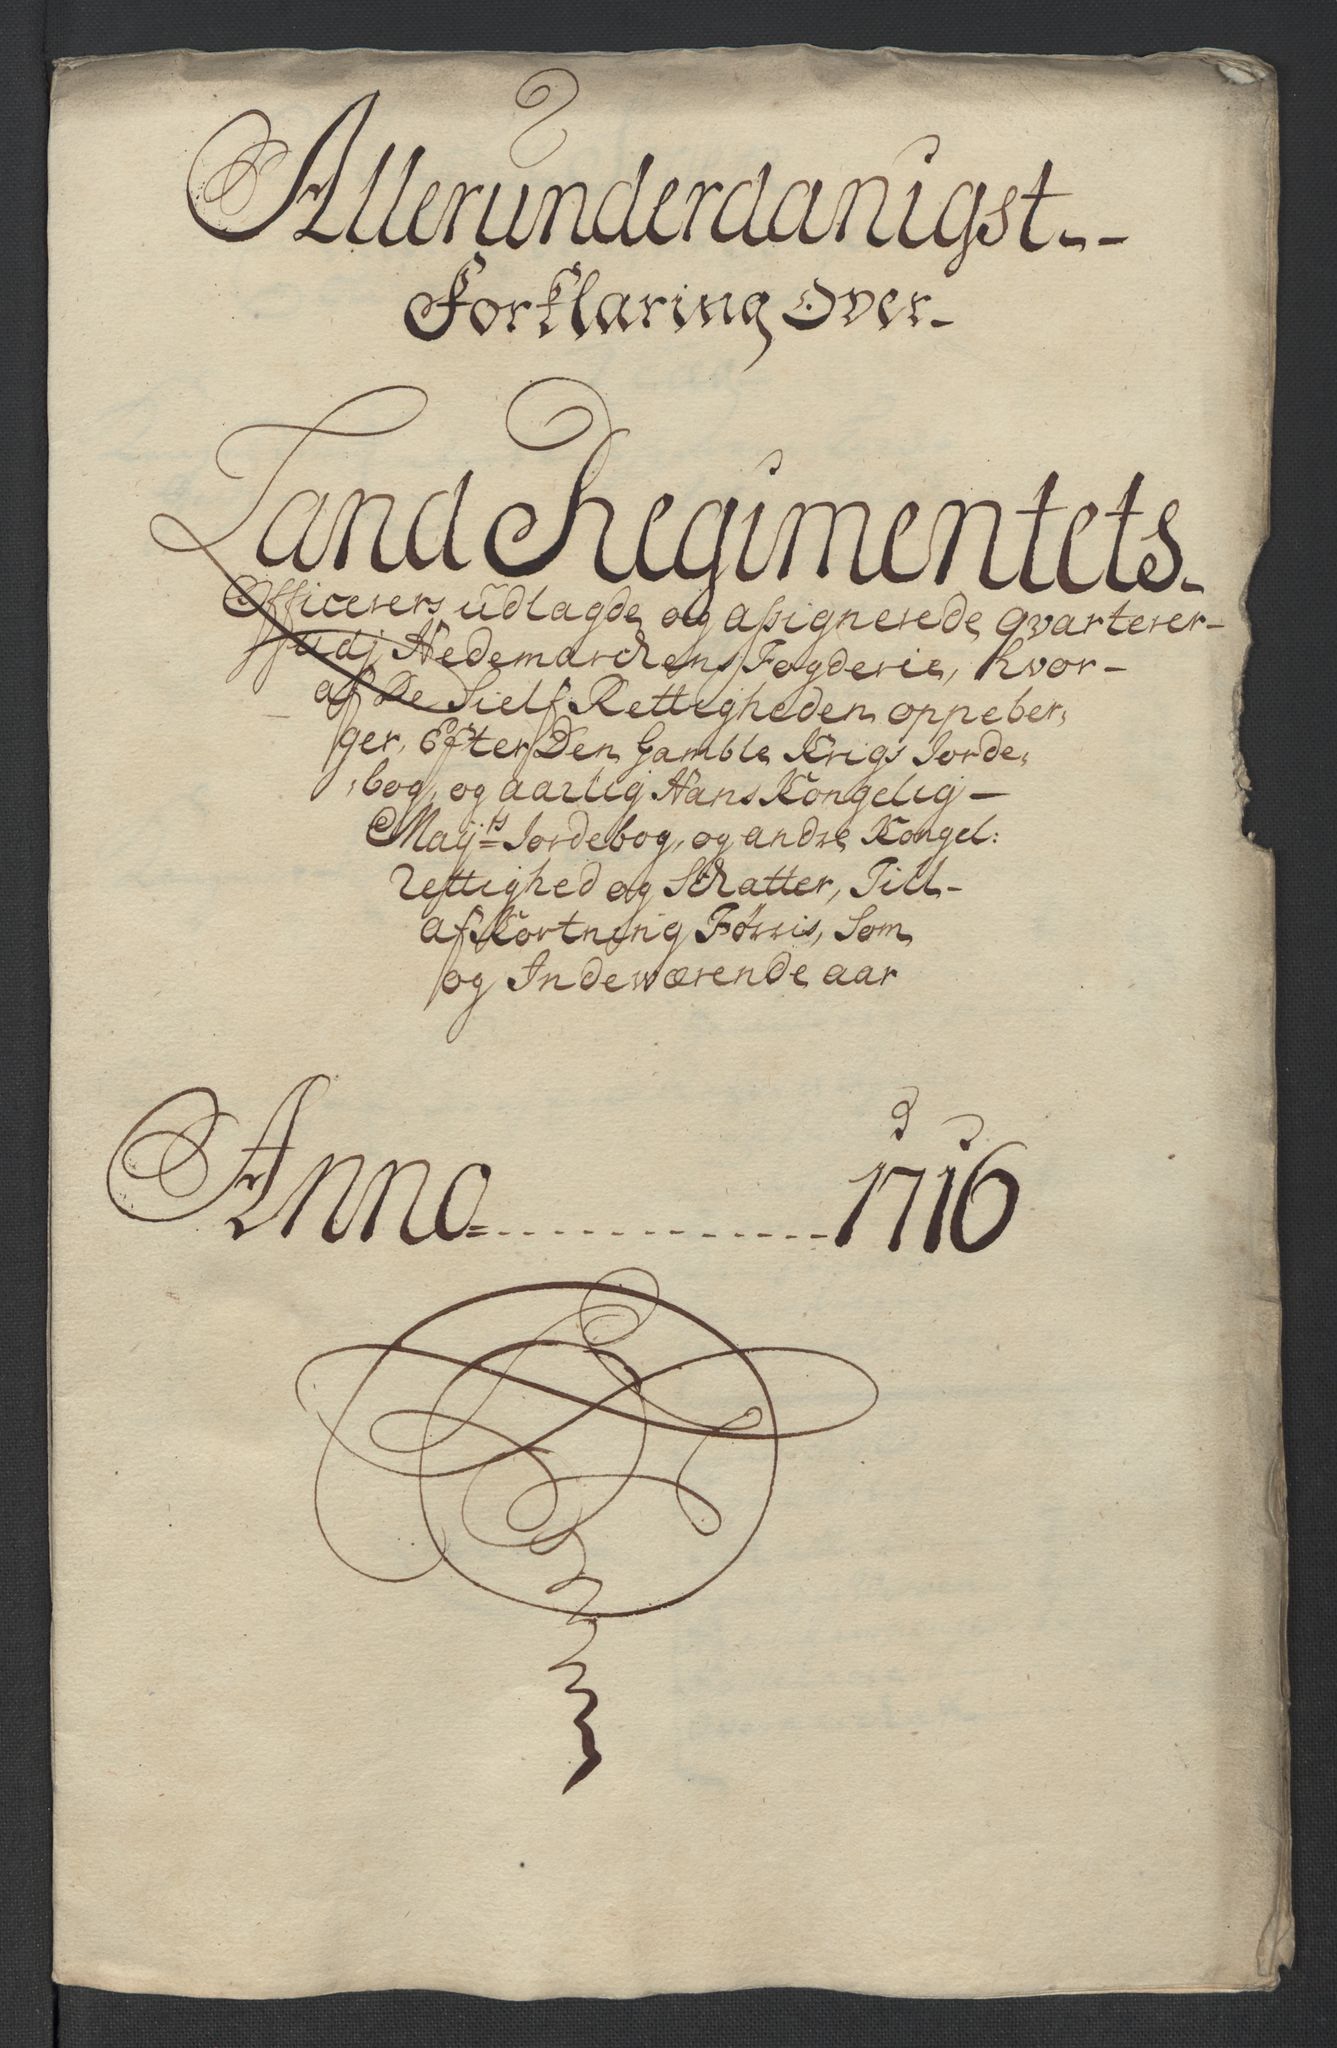 Allerunderdanigst--
Forklaring Over-
Land Regimentets-
Officerers udlagde og assignerede qvarterer-
udj Hedemarchens Fogderie, hvor-
af De Sielf Rettigheden oppeber,
ger, Efter Den Gamble Krigs Jorde,
,bog, og aarlig Hans Kongelig-
Mayts Jordebog, og andre Kongel:
rettighed og Schatter, Till-
afKortning Førris, Som
og Indeværende aar
Anno=............1716